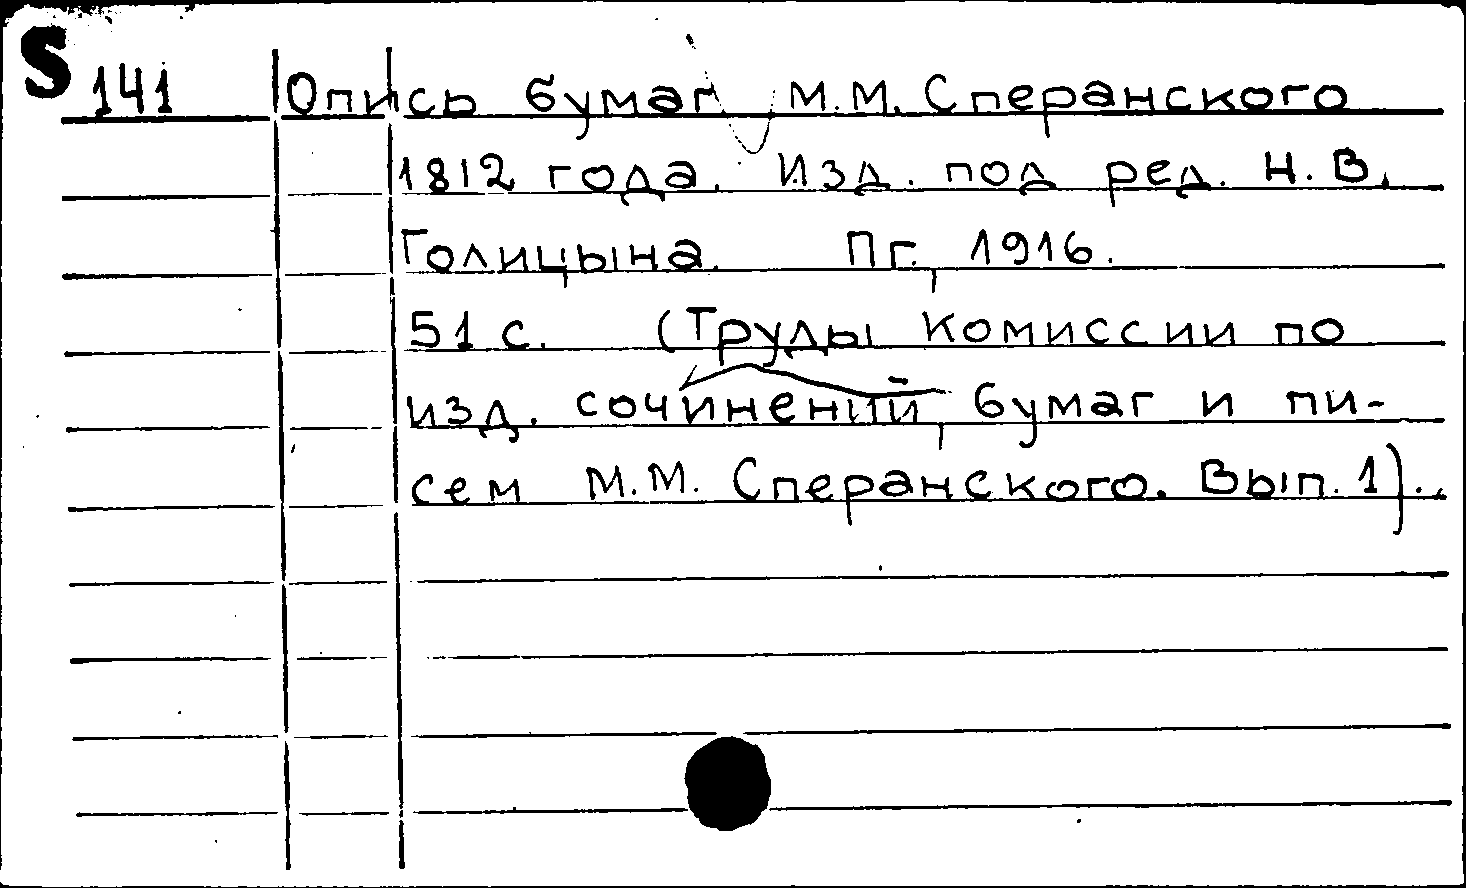 S 141 Опись бумаг М.М. Сперанского
1812 года. Изд. под ред. Н.В.
Голицына. Пг., 1916.
51 с. (Труды Комиссии по
изд. сочинений, бумаг и пи-
сем М.М. Сперанского. Вып. 1)..